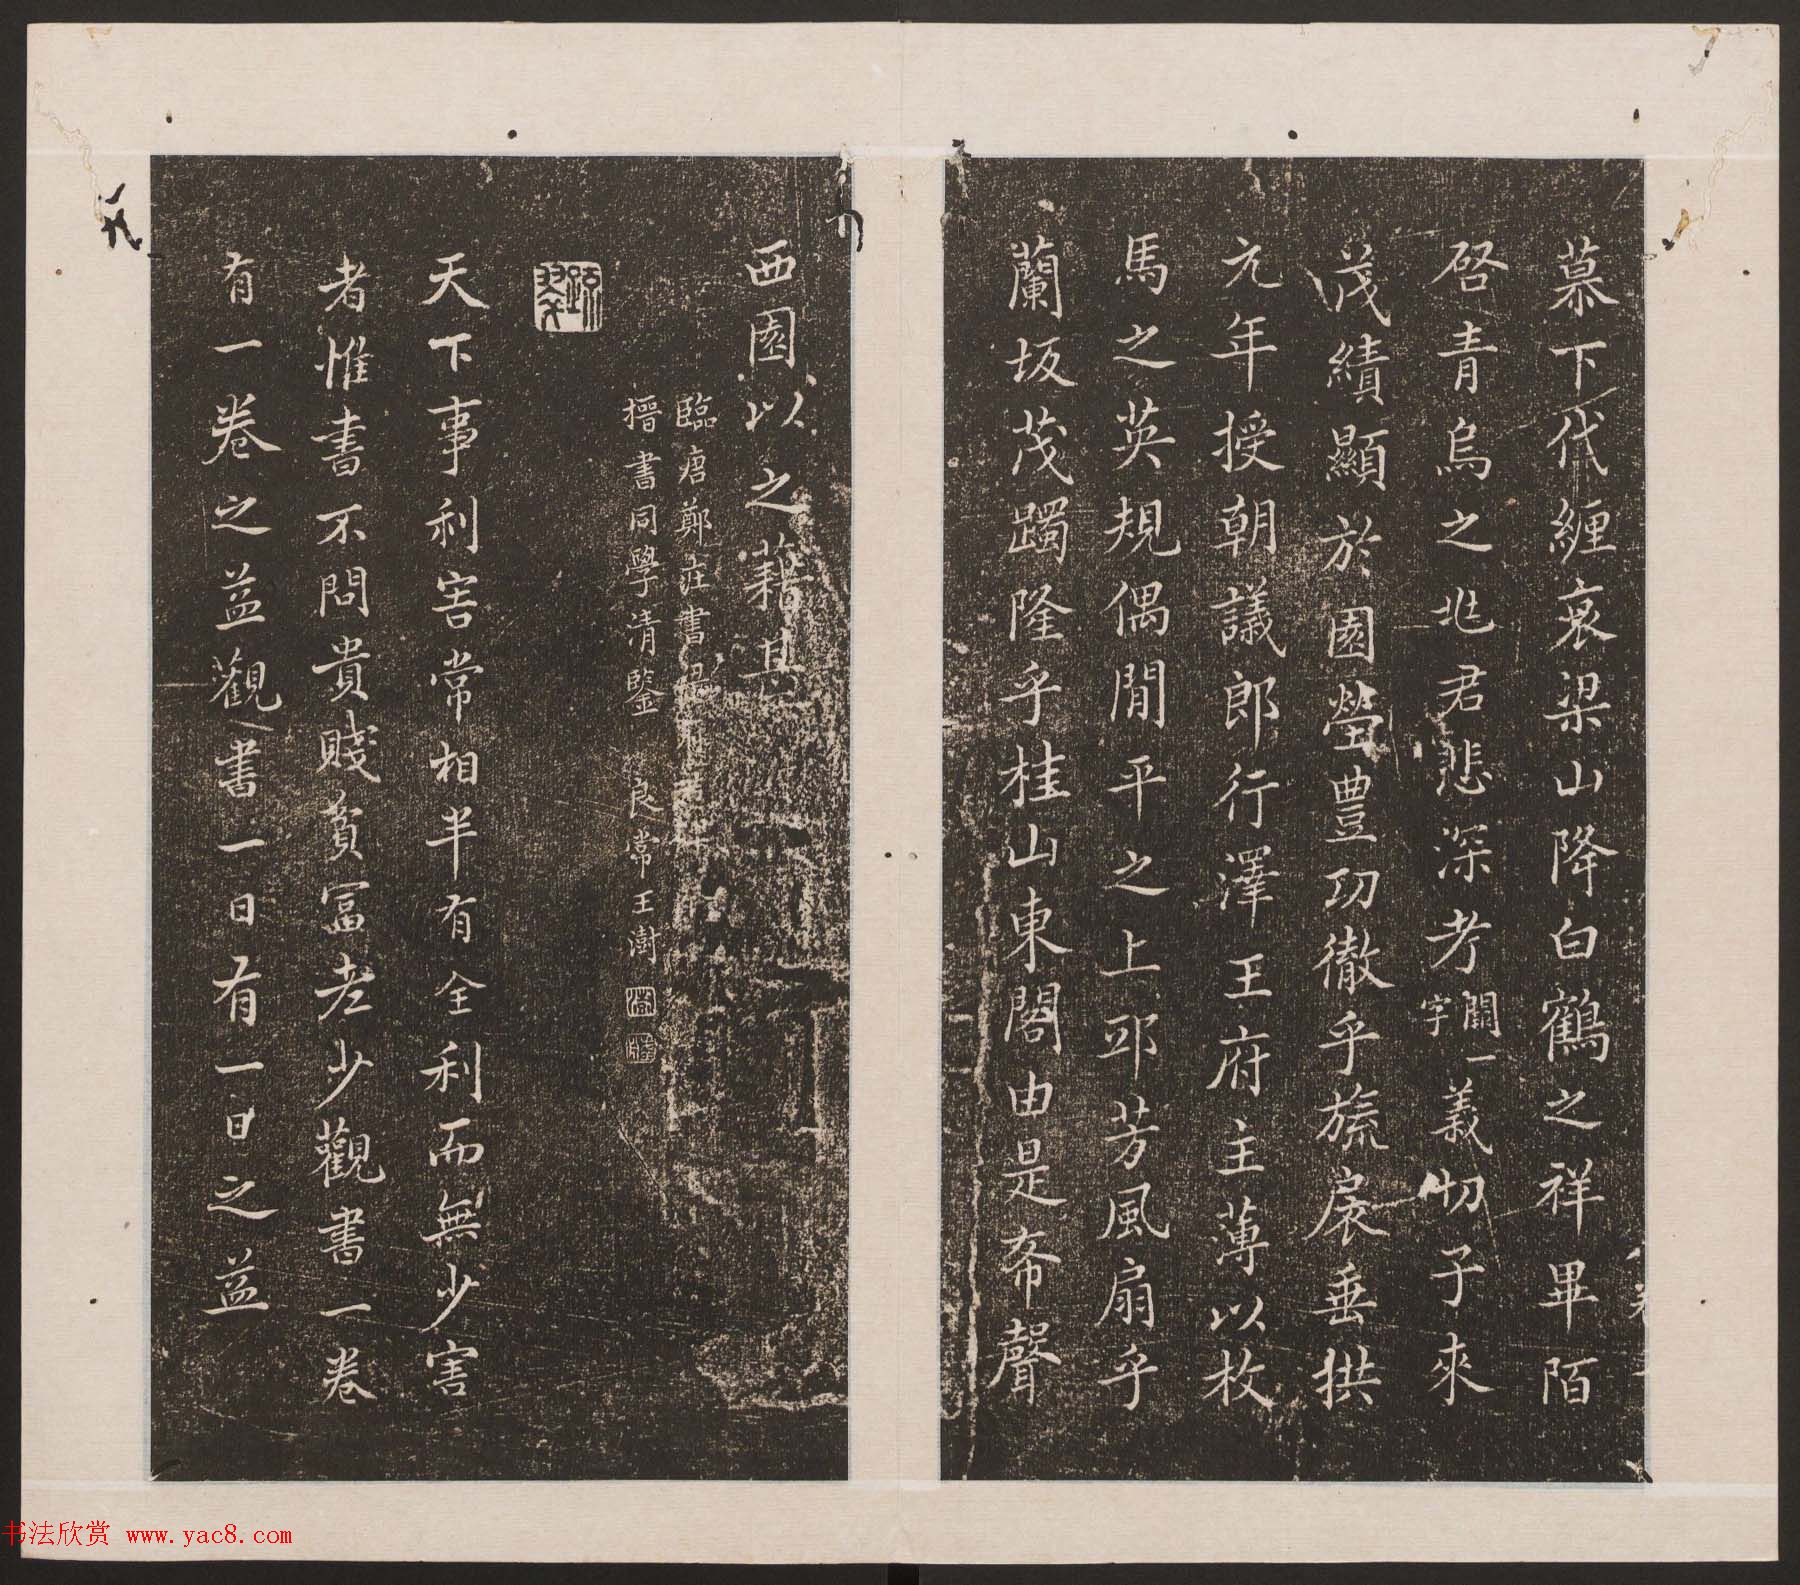 慕下代纏哀梁山降白鶴之祥畢陌
啓青烏之兆君悲深考闕一字義切子來
茂績顯於園塋豐功徹乎旒扆垂拱
元年授朝議郎行澤王府主薄以枚
馬之英規偶閒平之上邛芳風扇乎
蘭坂茂躅隆乎桂山東閣由是希聲
西園以之藉其
臨唐鄭莊書
搢書同學清鑒 良常王澍
天下事利害常相半有全利而無少害
者惟書不問貴賤貧富老少觀書一卷
有一卷之益觀書一日有一日之益
书法欣赏 www.yac8.com